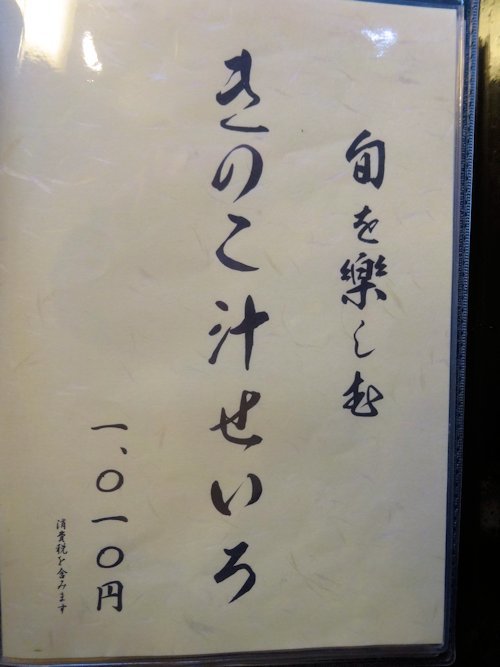 旬を楽しむ
きのこ汁せいろ
一、〇一〇円
消費税を含みます